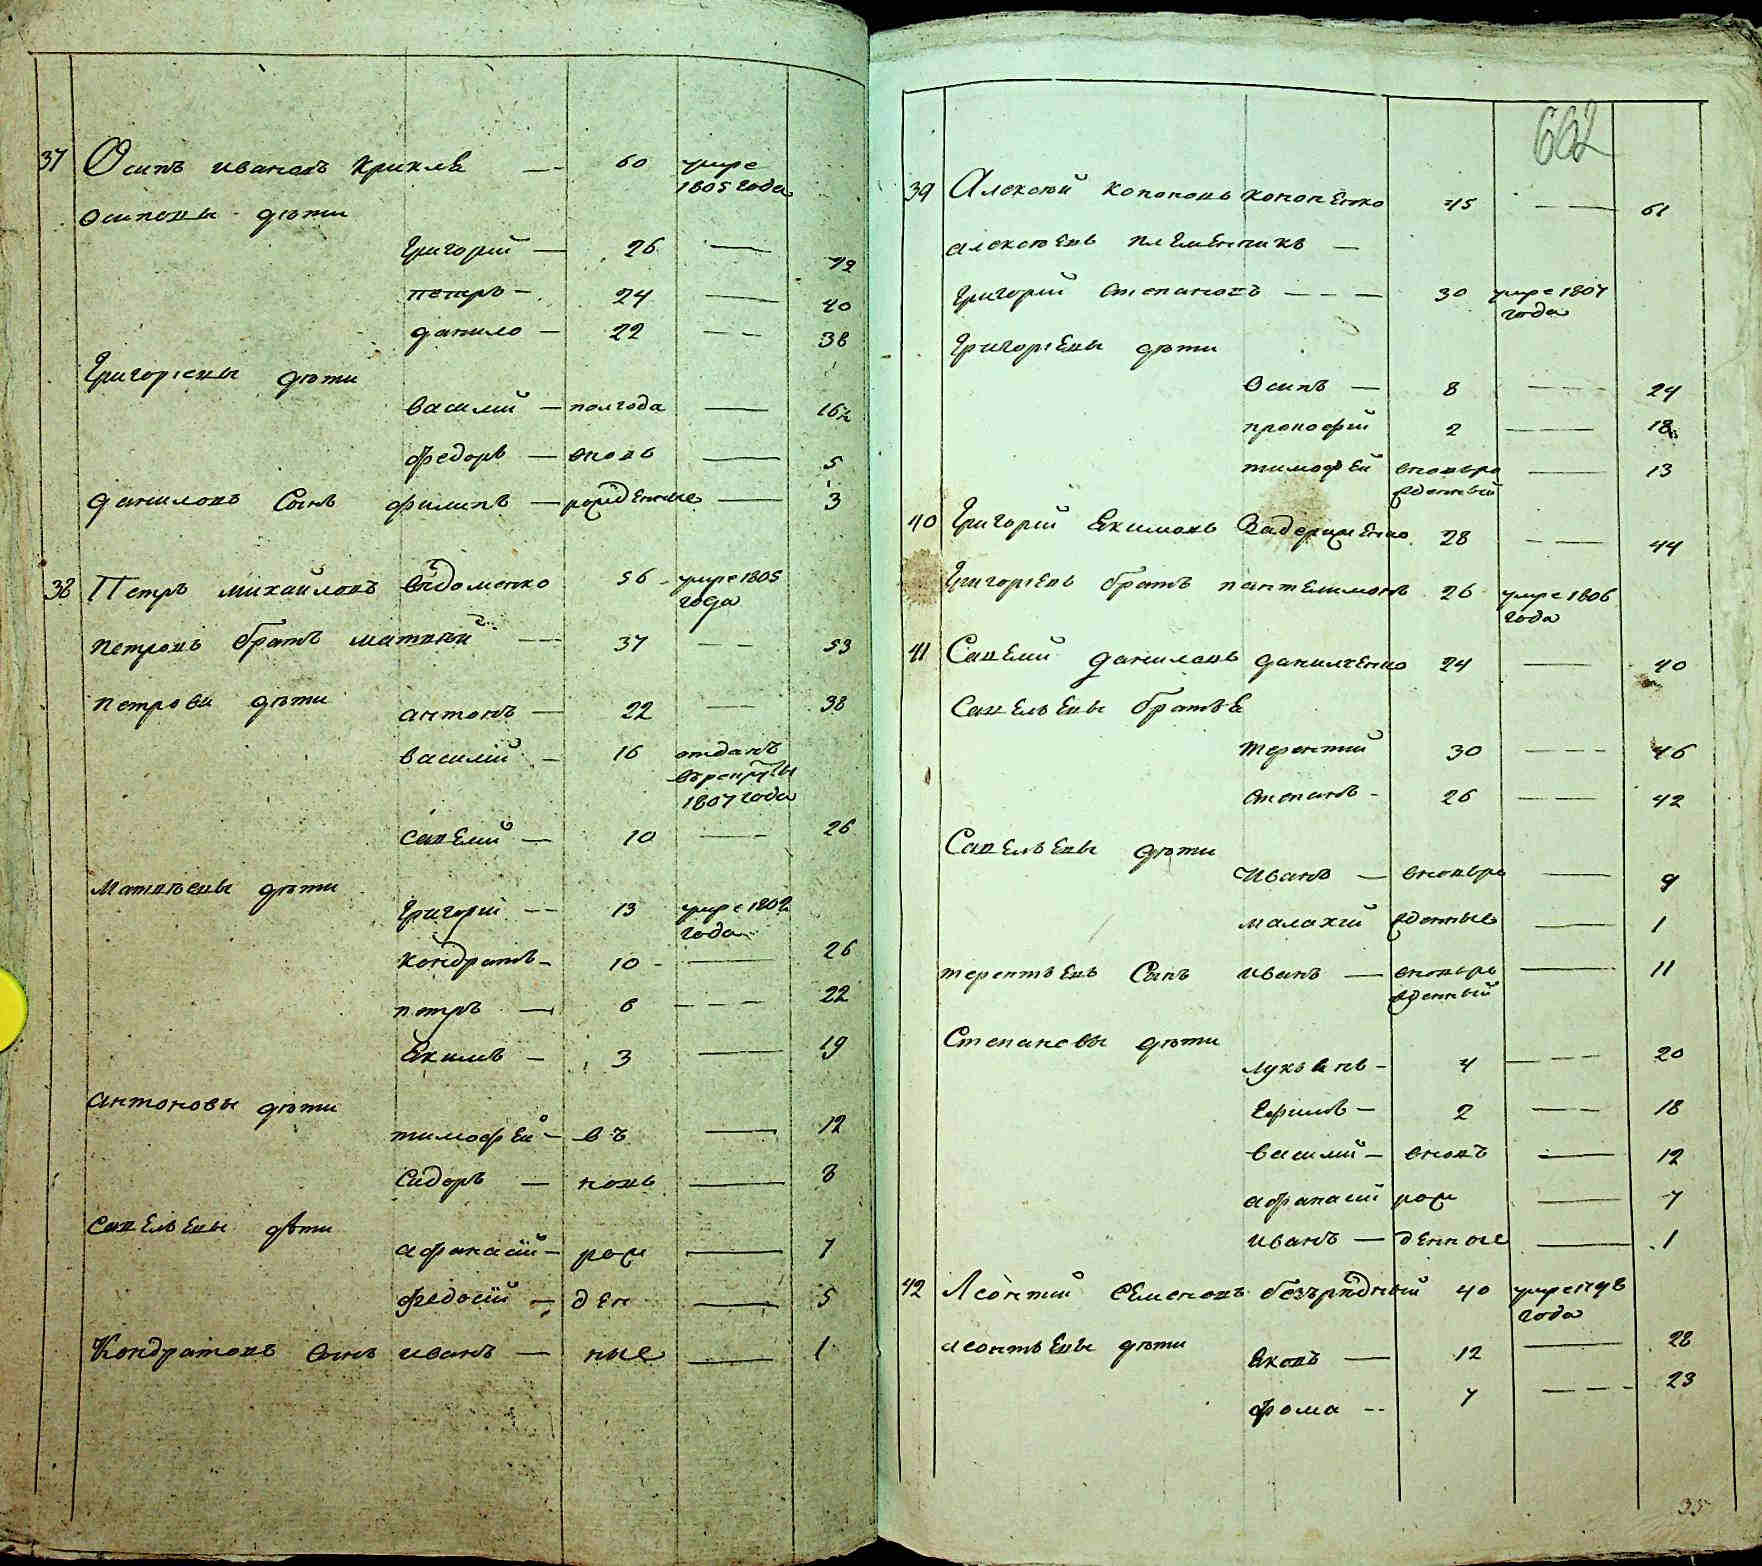 37 Осипъ ивановъ крикля — 60 умре
1805 года
осиповы дѣти
григорий — 26 — 42
петръ — 24 — 40
данило — 22 — 38
григориевы дѣти
василий — полгода — 16½
федоръ — вновь — 5
даниловъ Сынъ филипъ — рожденные — 3
38 Петръ михайловъ Евдоменко 56 умре 1805
года
петровъ братъ матвѣй — 37 — 53
петрови дѣти
антонъ — 22 — 38
василий — 16 отданъ
въ рекруты
1807 года
савелий — 10 — 26
матвѣевы дѣти
григорий — 13 умре 1802
года
кондратъ — 10 — 26
петръ — 6 — 22
Екимъ — 3 — 19
антоновы дѣти
тимофей — въ — 12
сидоръ — новь — 8
савельевы дѣти
афанасий — рож — 7
федосий — ден — 5
Кондратовъ сынъ иванъ — ные — 1
662
39 Алексѣй кононовъ кононенко 45 — 61
алексѣевъ племенникъ —
григорий степановъ — 30 умре 1807
года
григориевы дѣти
осипъ — 8 — 24
прокофий 2 — 18
тимофей вновьро
жденный — 13
40 Григорий Екимовъ Задериженко 28 — 44
григориевъ братъ пантелимонъ 26 умре 1806
года
41 Савелий даниловъ данилченко 24 — 40
Савельевы братья
терентий 30 — 46
степанъ — 26 — 42
Савельевы дѣти
иванъ — вновьро — 9
малахий жденные — 1
терентьевъ Сынъ иванъ — вновьро — 11
жденный
Степановы дѣти
лукьянъ — 4 — 20
Ефимъ — 2 — 18
василий — вновъ — 12
афанасий рож — 7
иванъ — денные — 1
42 Леонтий Семеновъ безърядный 40 умре 1798
года
леонтьевы дѣти
Яковъ — 12 — 28
фома — 7 — 23
35